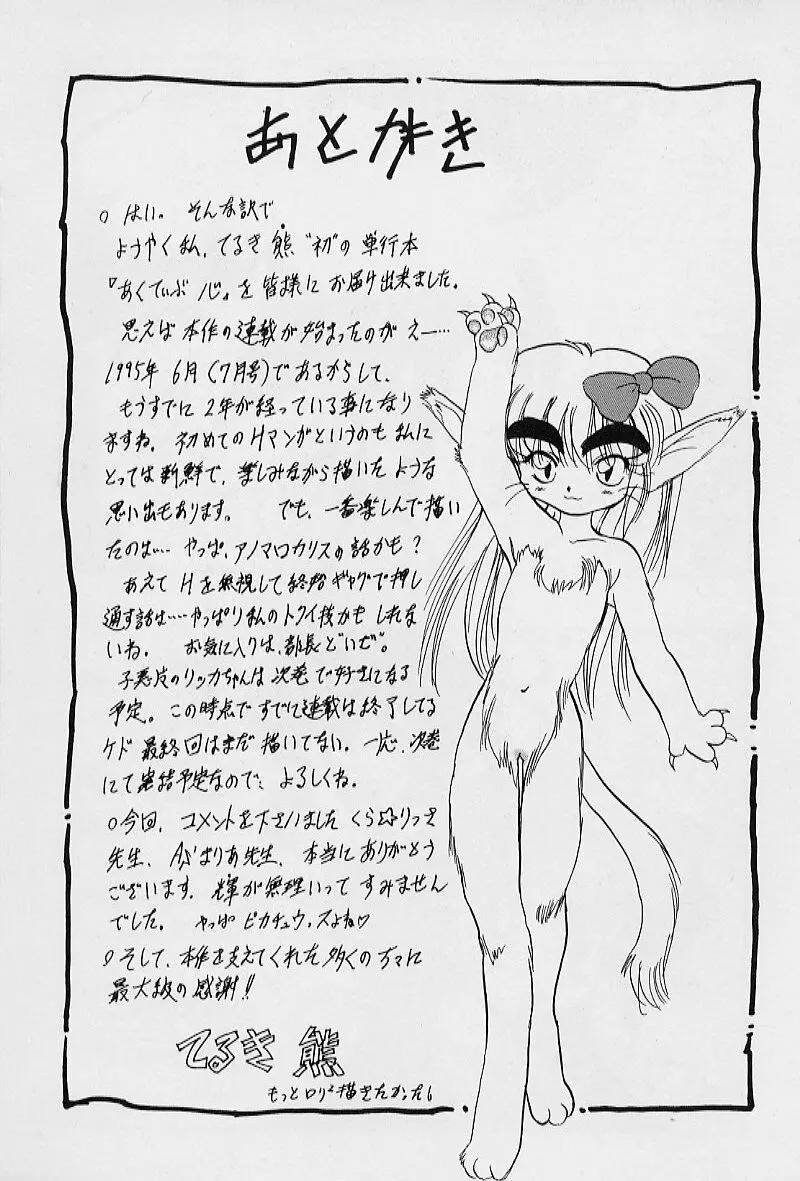 あとがき
○はい。そんな訳で
ようやく私、てるき熊〝初〟の単行本
『あくてぃぶ心』を皆様にお届け出来ました。
思えば本作の連載が始まったのがえー…
1995年6月(7月号)であるからして、
もうすでに2年が経っている事になり
ますね。初めてのHマンガというのも私に
とっては新鮮で、楽しみながら描いたような
思い出もあります。 でも、一番楽しんで描い
たのは… やっぱ、アノマロカリスの話かも?
あえてHを無視して終始ギャグで押し
通す話は……やっぱり私のトクイ技かもしれな
いね。 お気に入りは、部長どいぜ。
子悪党のリッカちゃんは次巻で好きになる
予定。この時点ですでに連載は終了してる
ケド最終回はまだ描いてない。一応、次巻
にて完結予定なので、よろしくね。
○今回、コメントを下さいましたくら☆りっさ
先生、 まりあ先生、本当にありがとう
ございます。輝が無理いってすみません
でした。 やっぱピカチュウ、スよね♡
○そして、本作を支えてくれた多くの方々に
最大級の感謝!!
てるき熊
もっとロリ²描きたかった